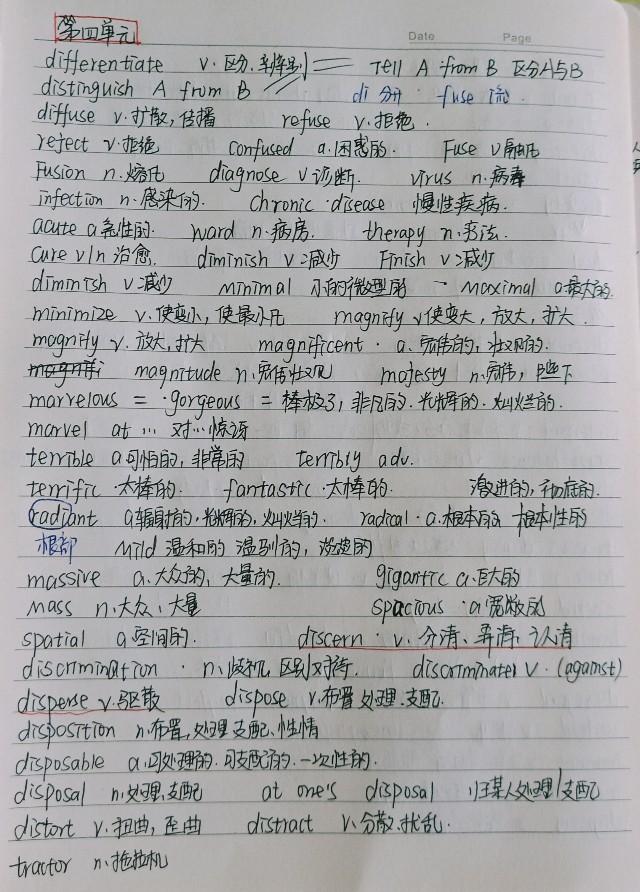 第四单元
Date Page
differentiate v.区分.辨别 = Tell A from B 区分A与B
distinguish A from B di 分 fuse 流
diffuse v.扩散,传播 refuse v.拒绝.
reject v.拒绝 confused a.困惑的. Fuse v融化
Fusion n.熔化 diagnose v诊断. virus n.病毒
infection n.感染的. chronic disease 慢性疾病.
acute a急性的. ward n.病房. therapy n.疗法.
cure v/n 治愈. diminish v减少 Finish v减少
diminish v减少 minimal 小的微型的 - maximal a最大的.
minimize v.使变小,使最小化 magnify v使变大,放大,扩大.
magnify v.放大,扩大 magnificent. a.宏伟的,壮丽的.
magnitude n.宏伟壮观 majesty n.宏伟,陛下
marvelous = gorgeous = 棒极了,非凡的.光辉的.灿烂的.
marvel at … 对…惊讶
terrible a可怕的,非常的 terribly adv.
terrific 太棒的. fantastic 太棒的. 激进的,彻底的.
radiant a辐射的,光辉的,灿烂的. radical a.根本的 根本性的
根部 mild 温和的 温驯的,淡的
massive a.大众的,大量的. gigantic a.巨大的
mass n.大众,大量 spacious a宽敞的
spatial a空间的. discern v.分清、弄清、认清
discrimination n.歧视,区别对待. discriminate v.(against)
disperse v.驱散 dispose v.布置 处理.支配.
disposition n.布置,处理 支配.性情
disposable a.可处理的.可支配的.一次性的.
disposal n.处理.支配 at one's disposal 归某人处理/支配
distort v.扭曲,歪曲 distract v.分散.扰乱.
tractor n.拖拉机